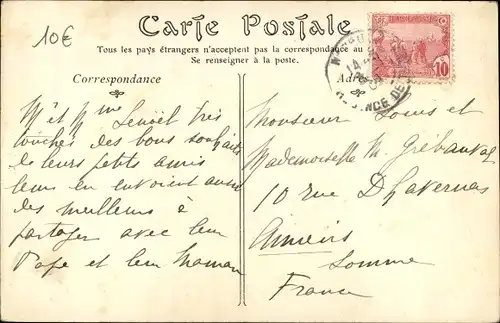 10€
Carte Postale
Tous les pays étrangers n'acceptent pas la correspondance au
Se renseigner à la poste.
Correspondance
10
Mr et Mme Lenoël très
touchés des bons souhaits
de leurs petits amis
leur en envoient aussi
des meilleurs à
partager avec leur
Papa et leur Maman
Monsieur Louis et
Mademoiselle M. Grébauval
10 rue Dhavernas
Amiens
Somme
France